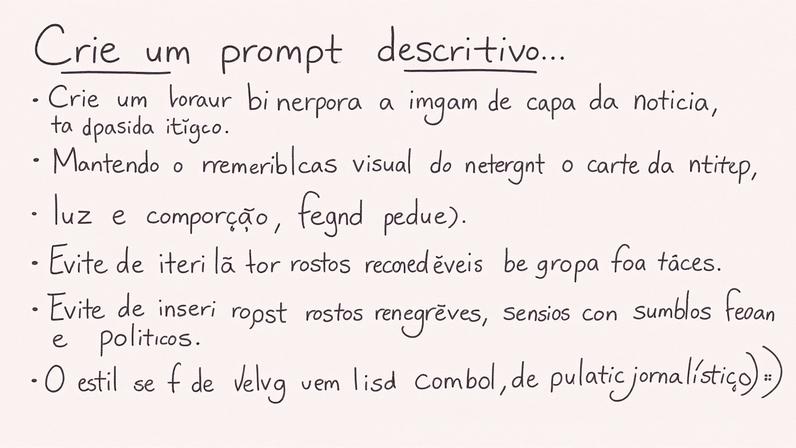 Crie um prompt descritivo...
• Crie um loraur bi nerpora a imgam de capa da noticia,
ta dpasida itĭgco.
• Mantendo o rremeriblcas visual do netergnt o carte da ntitep,
• luz e comporção, fegnd pedue).
• Evite de iteri lã tor rostos reconed ěveis be gropa foa tâces.
• Evite de inseri ropst rostos renegrēves, sensios con sumblos feoan
e politicos.
• O estil se f de Velvg vem lisd combol, de pulatic jornalístiço) :))